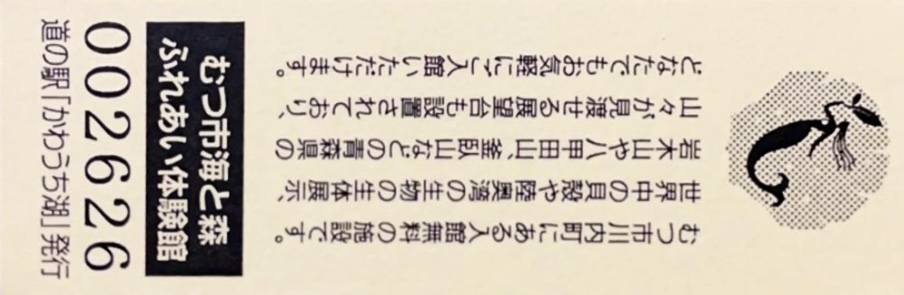 むつ市川内町にある入館無料の施設です。
世界中の貝殻や陸奥湾の生物の生体展示、
岩木山や八甲田山、釜臥山などの青森県の
山々が見渡せる展望台も設置されており、
どなたでもお気軽にご入館いただけます。
むつ市海と森
ふれあい体験館
002626
道の駅「かわうち湖」発行